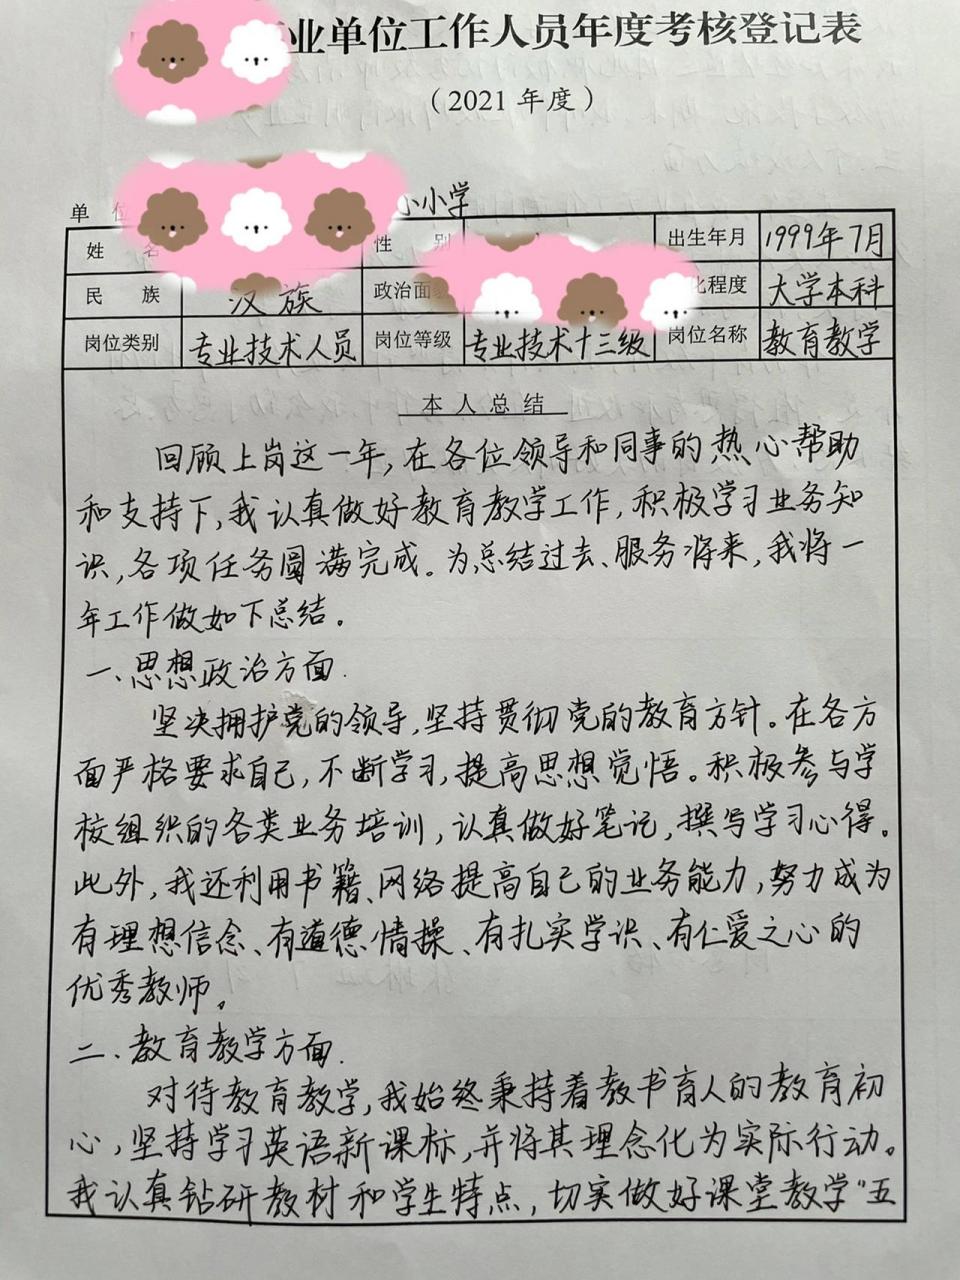 业单位工作人员年度考核登记表
（2021 年度）
单 位 小学
姓 性 别 出生年月 1999年7月
民 族 汉族 政治面 化程度 大学本科
岗位类别 专业技术人员 岗位等级 专业技术十三级 岗位名称 教育教学
本人总结
回顾上岗这一年,在各位领导和同事的热心帮助
和支持下,我认真做好教育教学工作,积极学习业务知
识,各项任务圆满完成。为总结过去、服务将来,我将一
年工作做如下总结。
一、思想政治方面.
坚决拥护党的领导,坚持贯彻党的教育方针。在各方
面严格要求自己,不断学习,提高思想觉悟。积极参与学
校组织的各类业务培训,认真做好笔记,撰写学习心得。
此外,我还利用书籍、网络提高自己的业务能力,努力成为
有理想信念、有道德情操、有扎实学识、有仁爱之心的
优秀教师。
二、教育教学方面.
对待教育教学,我始终秉持着教书育人的教育初
心,坚持学习英语新课标,并将其理念化为实际行动。
我认真钻研教材和学生特点,切实做好课堂教学"五